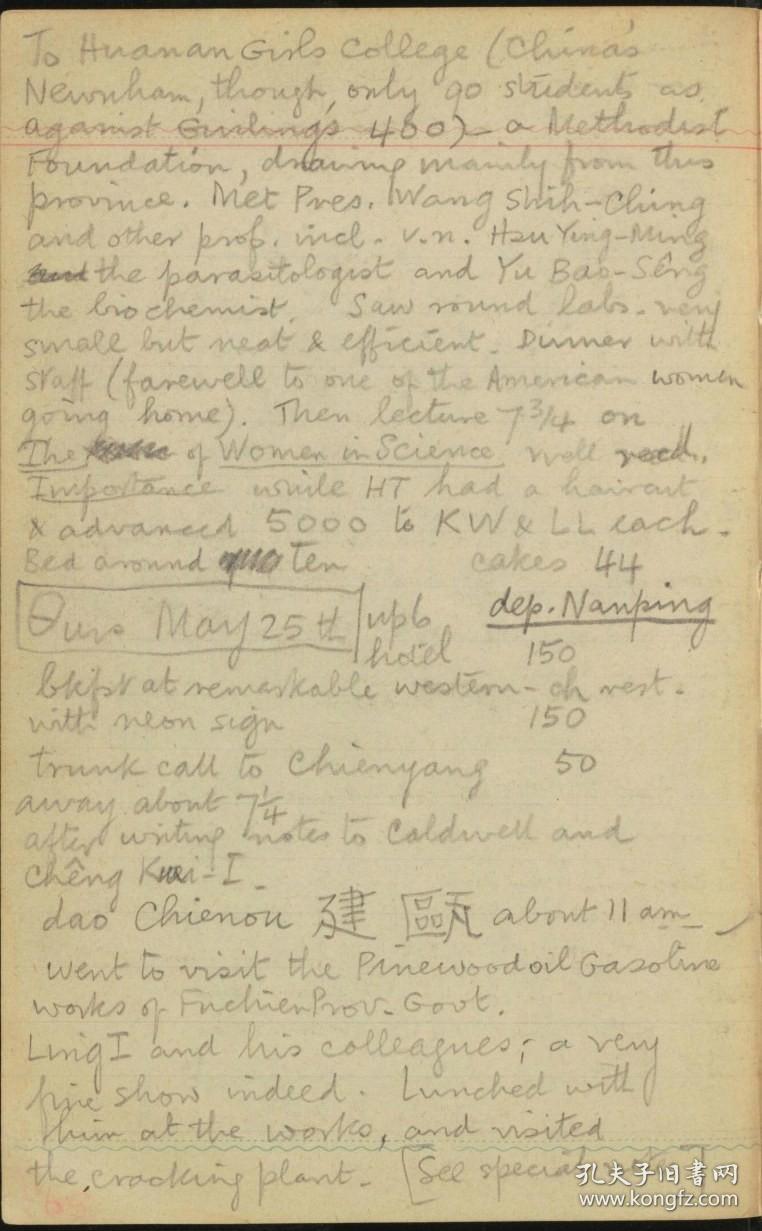 To Huanan Girls College (China's
Newnham, though, only 90 students as
against Ginling's 400) – a Methodist
Foundation, drawing mainly from this
province. Met Pres. Wang Shih-Ching
and other prof. incl. v.n. Hsu Ying-Ming
and the parasitologist and Yu Bao-Sêng
the biochemist. Saw round labs. very
small but neat & efficient. Dinner with
staff (farewell to one of the American women
going home). Then lecture 7 3/4 on
The of Women in Science well recd.
Importance while HT had a haircut
& advanced 5000 to KW & LL each.
Bed around ten cakes 44
Thurs May 25th up 6 dep. Nanping
hotel 150
bkfst at remarkable western-ch rest.
with neon sign 150
trunk call to Chienyang 50
away about 7 1/4
after writing notes to Caldwell and
Chêng Kwei-I.
dao Chienou 建甌 about 11 am
went to visit the Pinewoodoil Gasoline
works of Fuchien Prov. Govt.
Ling I and his colleagues; a very
fine show indeed. Lunched with
him at the works, and visited
the cracking plant. [See special
孔夫子旧书网
www.kongfz.com